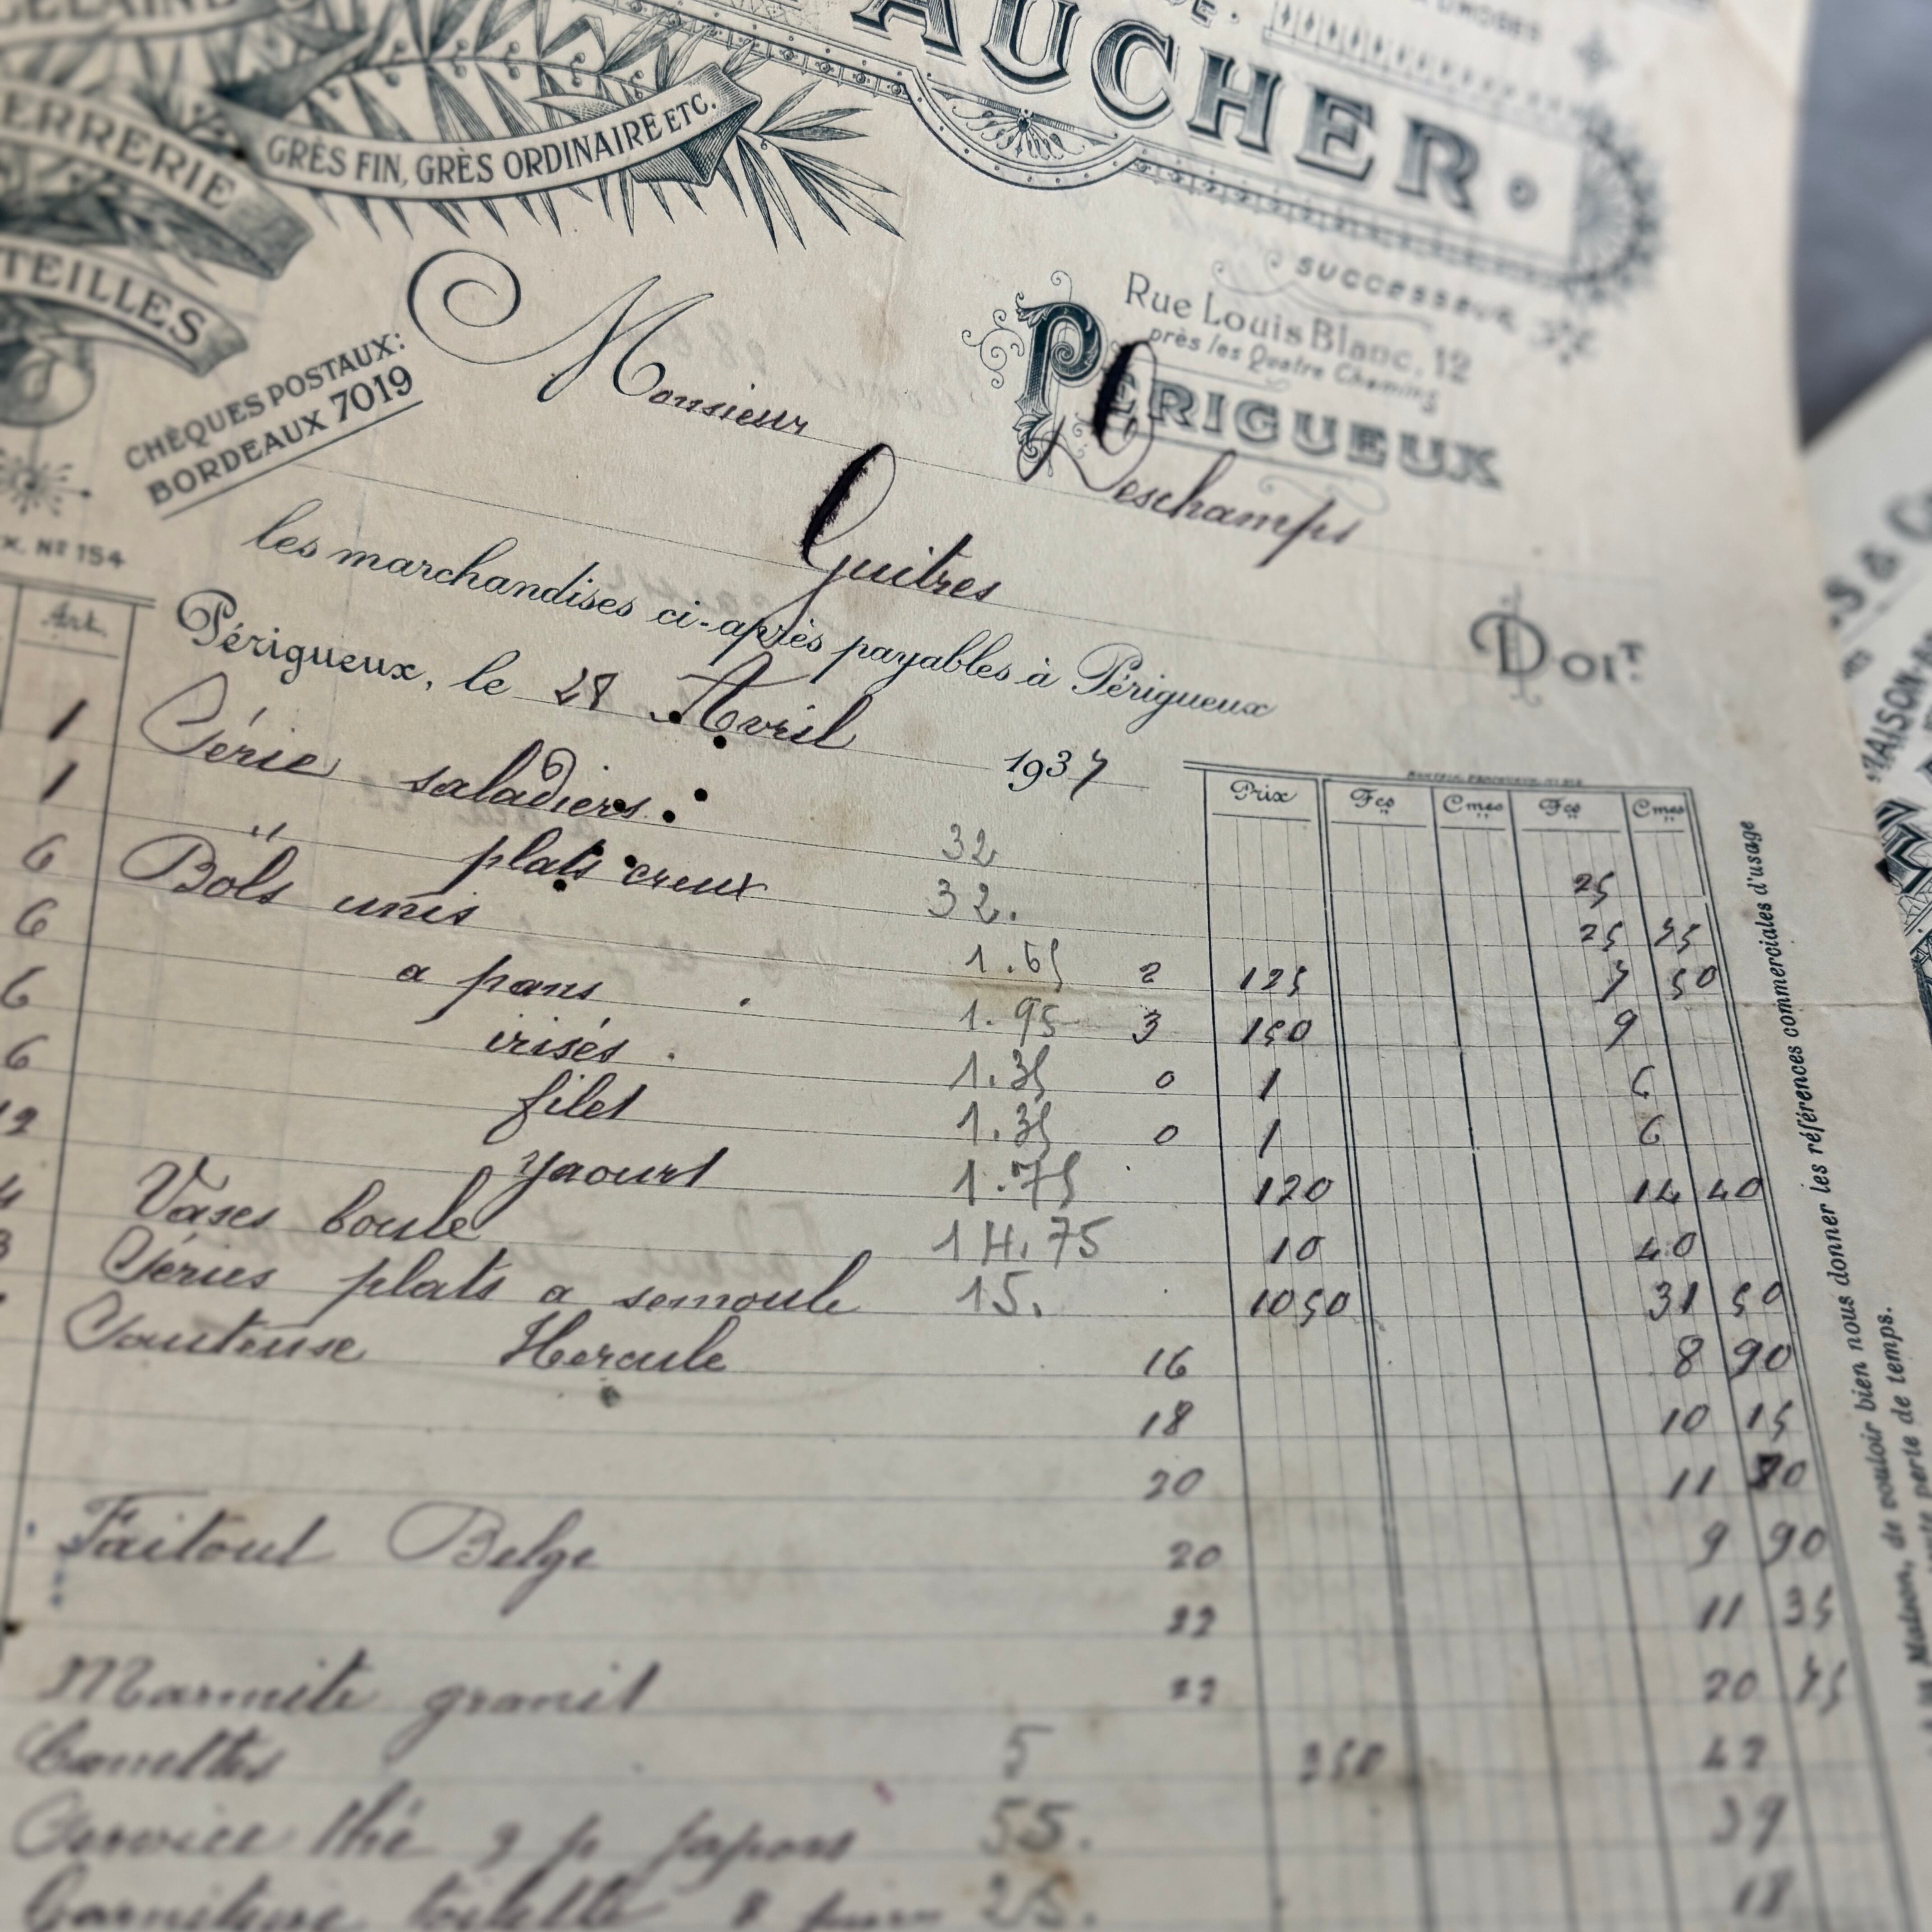 ERRERIE
TEILLES
GRÈS FIN, GRÈS ORDINAIRE ETC.
AUCHER
SUCCESSEUR
Rue Louis Blanc, 12
près les Quatre Chemins
PÉRIGUEUX
CHÈQUES POSTAUX:
BORDEAUX 7019
Monsieur Deschamps
Guitres
X. Nº 154
DOIT
les marchandises ci-après payables à Périgueux
Périgueux, le 28 Avril 1937
Art. Prix Fcs Cmes Fcs Cmes
1 Série saladiers 32 25
1 " plats creux 32. 25 75
6 Bols unis 1.65 2 125 7 50
6 a pans 1.95 3 150 9
6 irisés 1.35 0 1 6
6 filet 1.35 0 1 6
12 yaourt 1.75 120 14 40
4 Vases boule 14.75 10 40
3 Séries plats a semoule 15. 1050 31 50
Sauteuse Hercule 16 8 90
18 10 15
20 11 80
Faitout Belge 20 9 90
22 11 35
Marmite granit 22 20 75
Canettes 5 350 42
Service thé 9 p japons 55. 39
Garniture toilette 25. 18
de vouloir bien nous donner les références commerciales d'usage
perte de temps.
MAISON